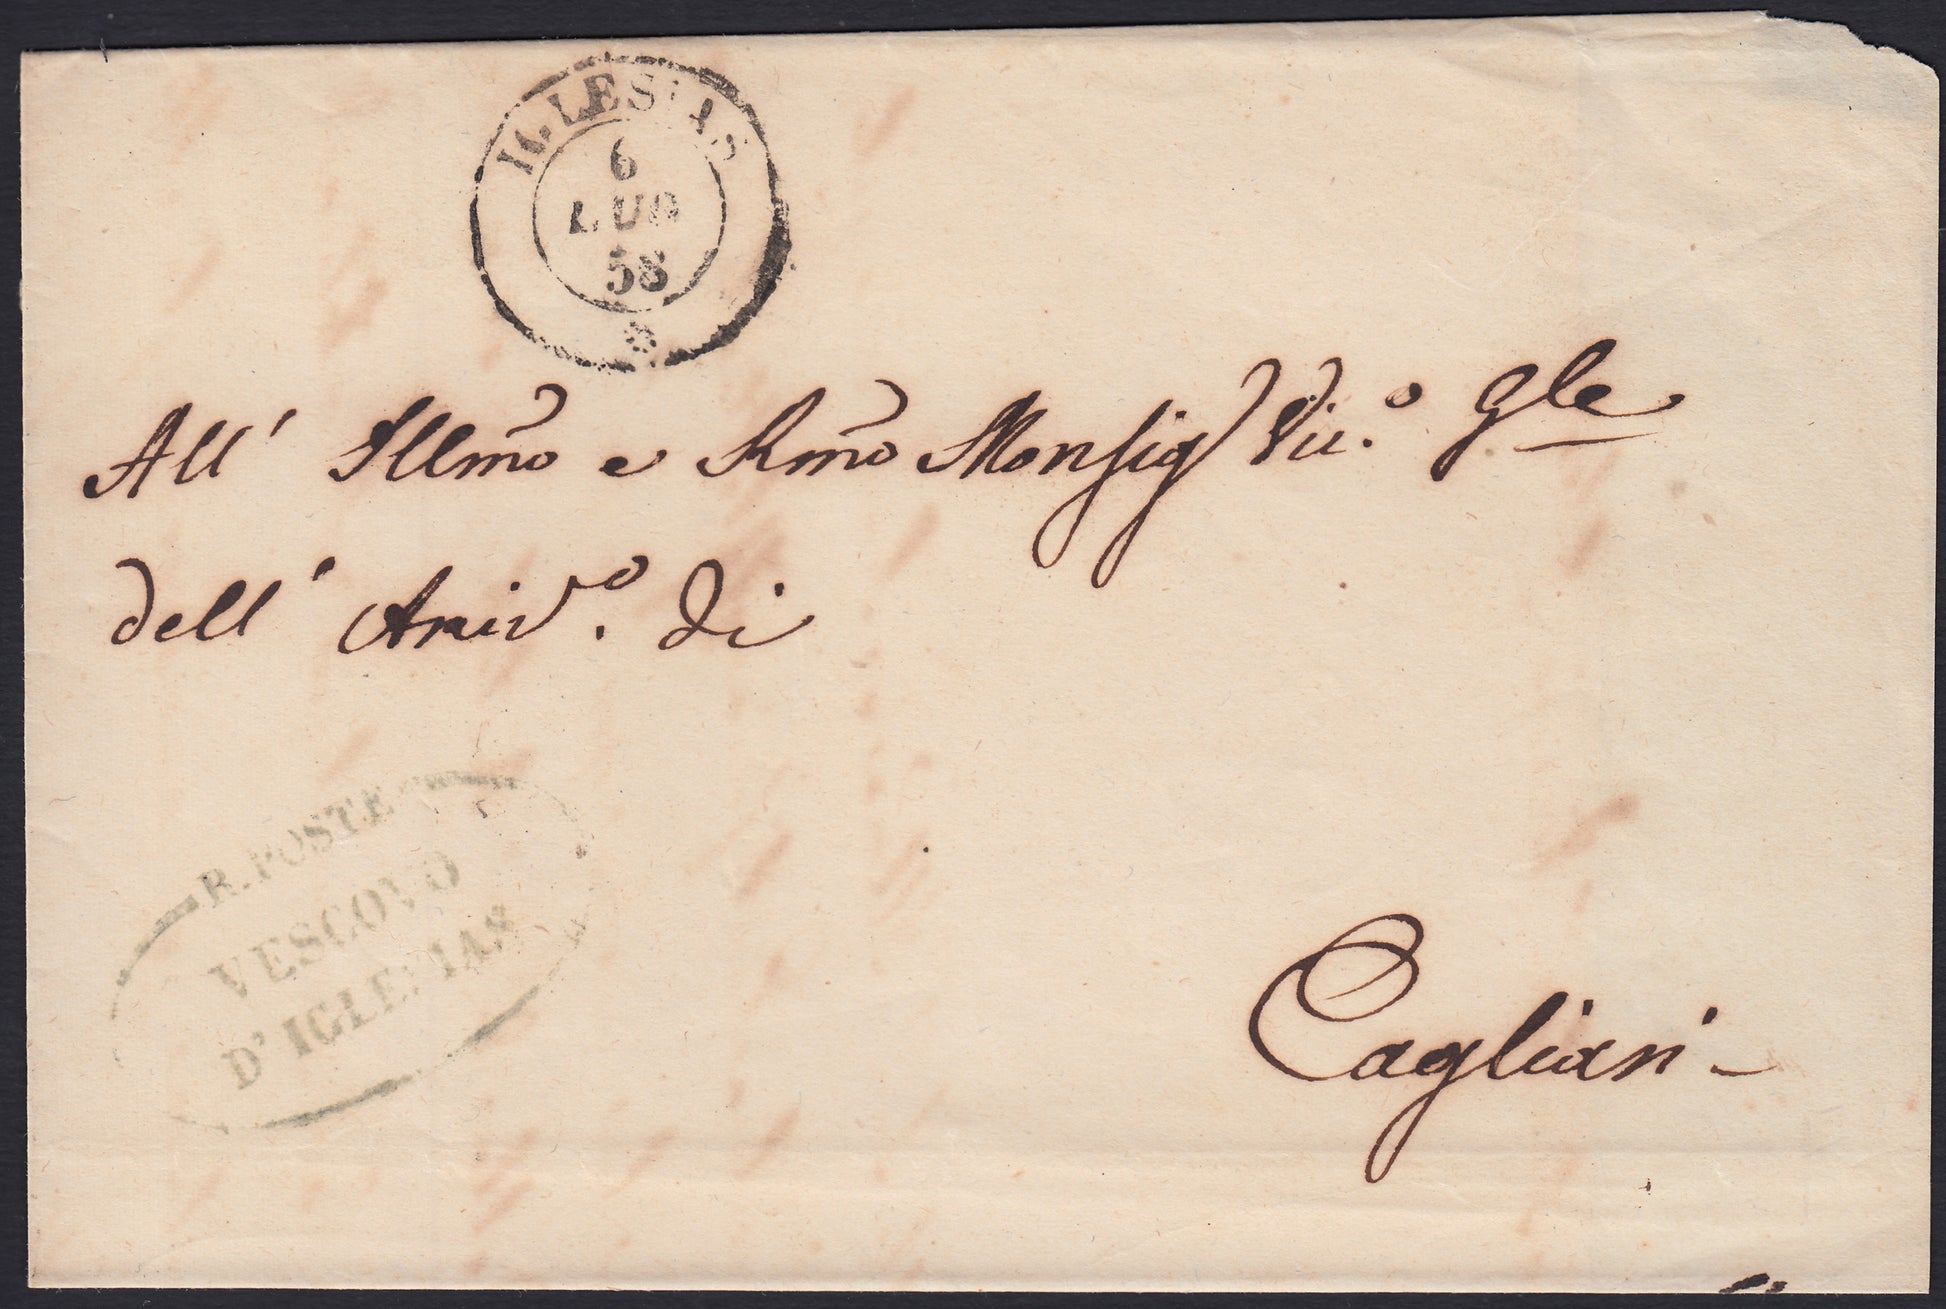 IGLESIAS
6
LUG
58
All' Illmo e Rmo Monsig Vic.o Gle
dell' Arciv.o di
R. POSTE
VESCOVO
D'IGLESIAS
Cagliari -